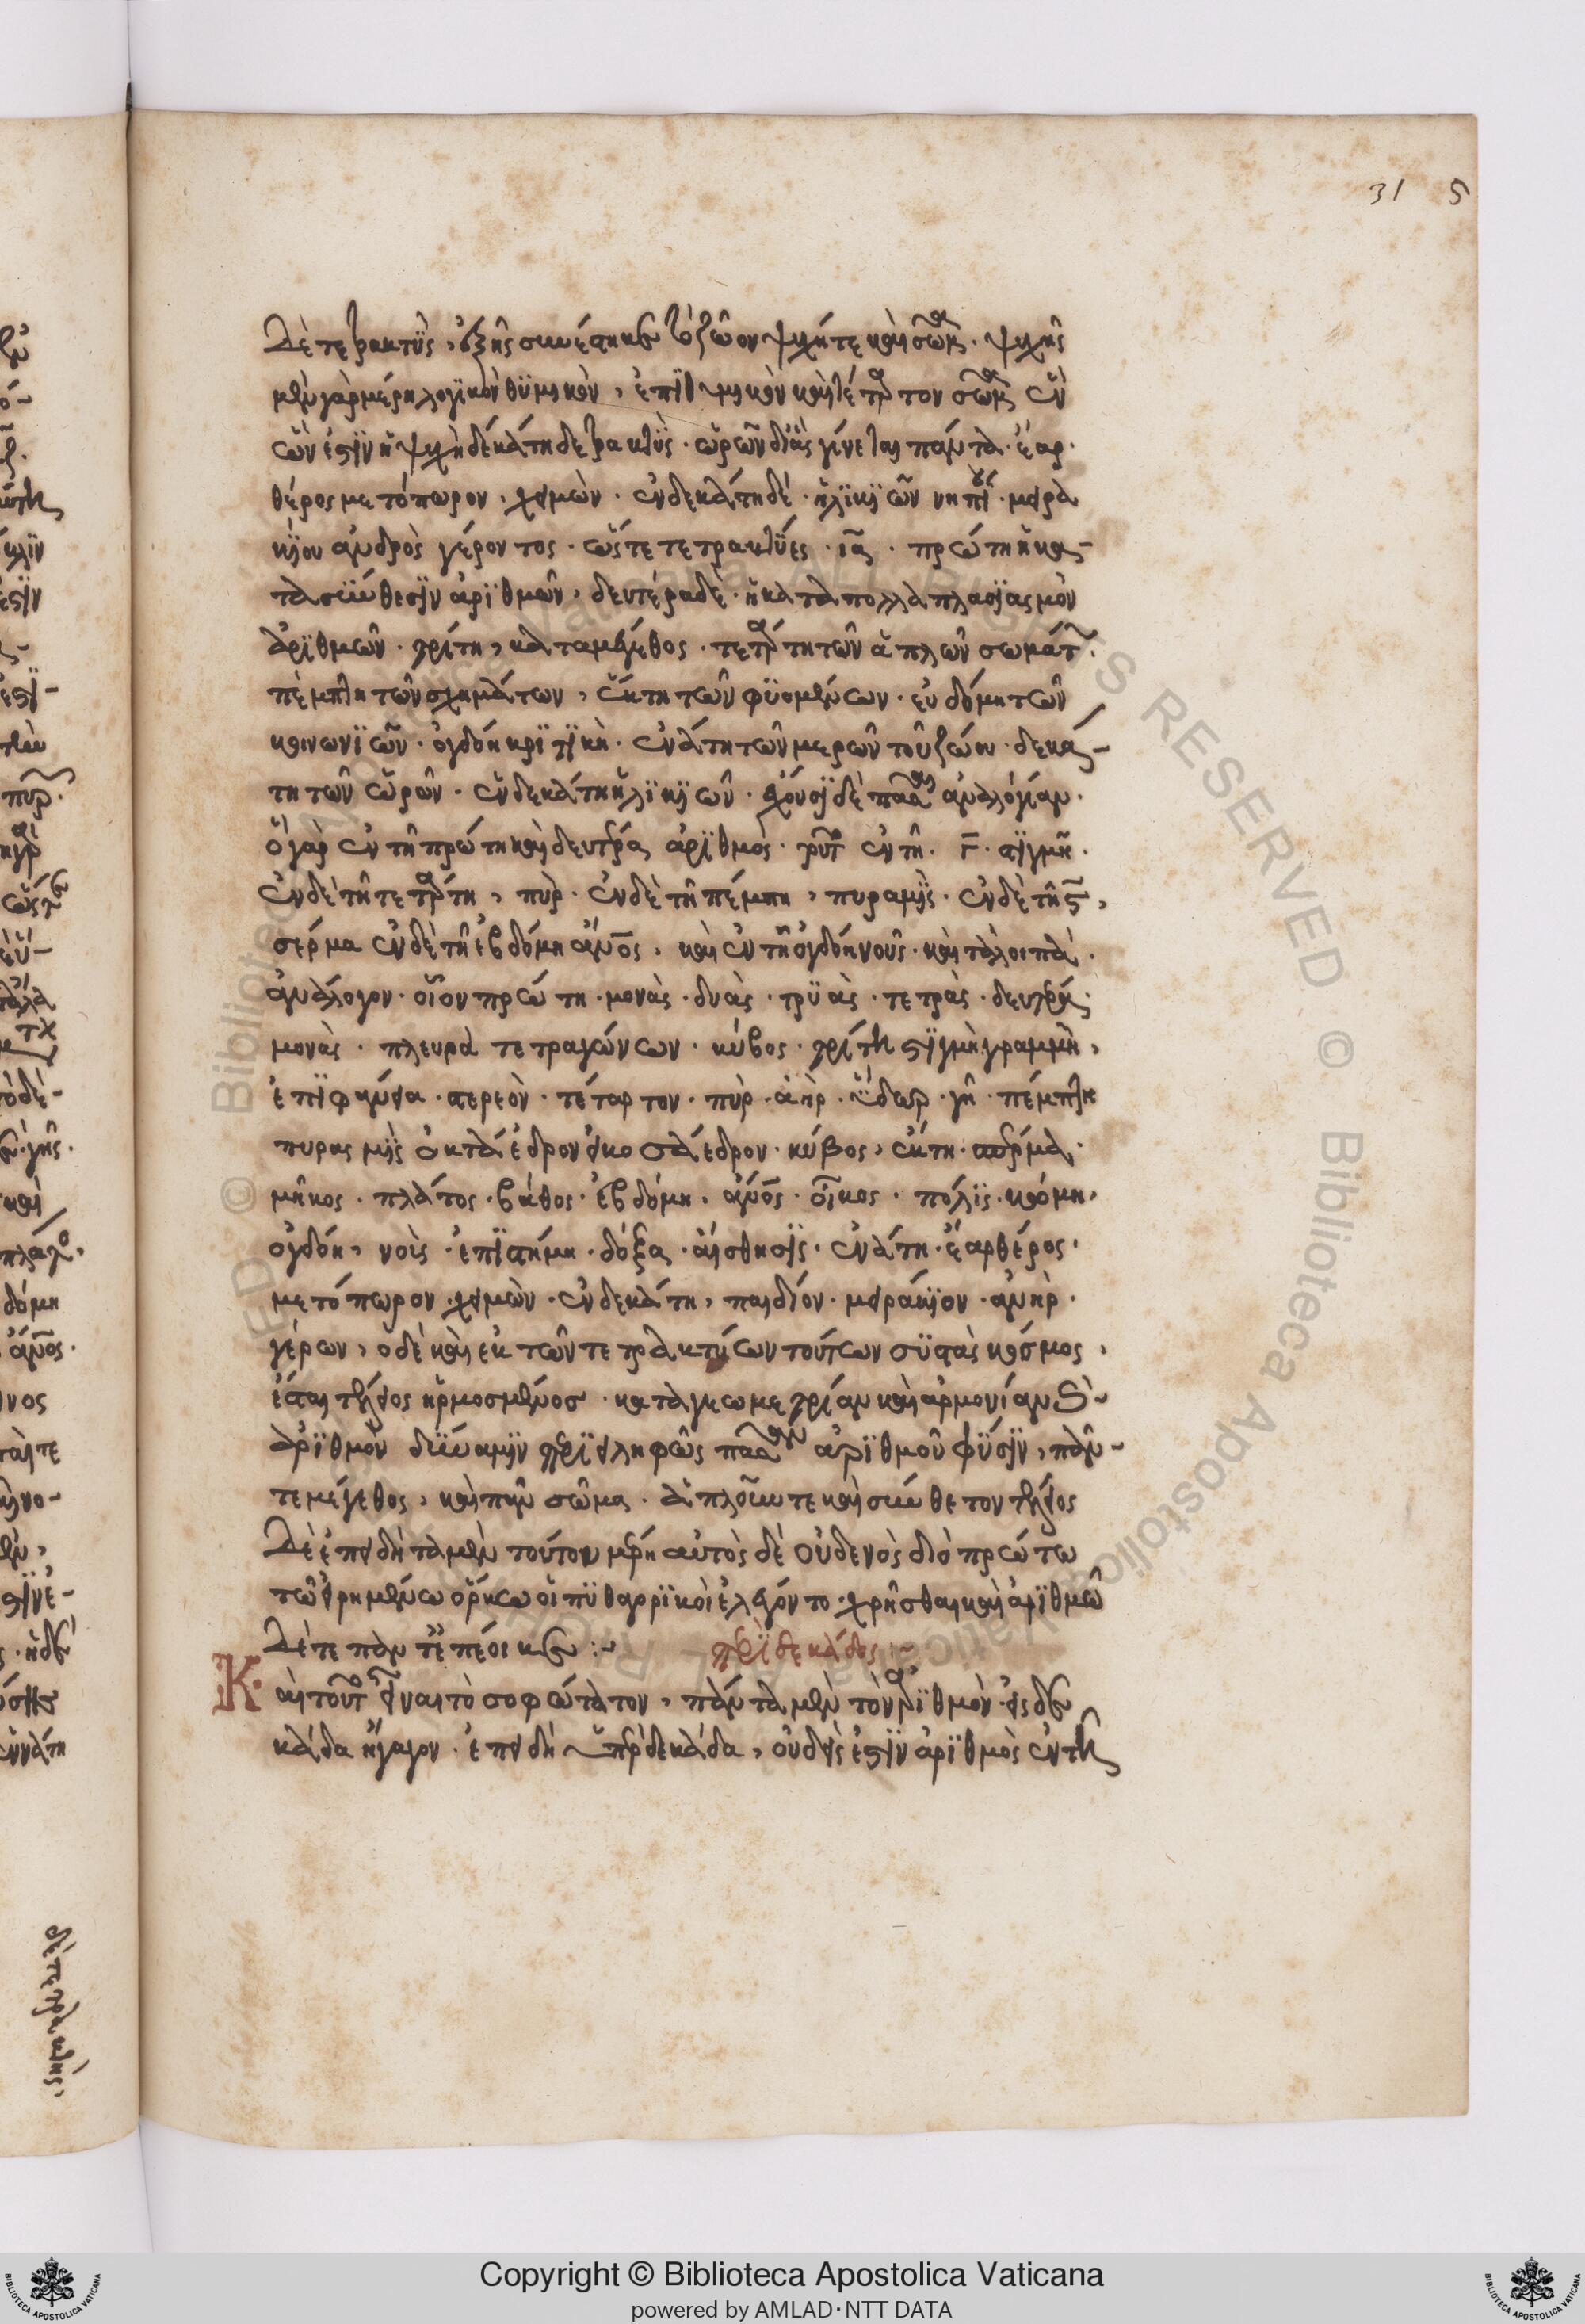 31 5
δὲ τετρακτῢς, ἐξ ἧς συνέστηκεν τὸ ζῶον ψυχή τε καὶ σῶμα. ψυχῆς
μὲν γὰρ μέρη λογϊκὸν θϋμικὸν, ἐπϊθυμικὸν καὶ τέταρτον σῶμα ἐν
ὧν ἐστϊν ἡ ψυχὴ δεκάτη δὲ τρακτῢς. ὡρῶν δι' ἃς γίνεται πάντα. ἔαρ.
θέρος μετόπωρον. χειμὼν. ἐνδεκάτη δὲ. ἡλϊκϊῶν νηπίου. μειρα
κϊου ἀνδρὸς γέροντος. ὥστε τετρακτΰες. ια. πρώτη ἡ κα-
τα σύνθεσϊν ἀρϊθμῶν, δευτέρα δὲ. ἡ κατὰ πολλαπλασϊασμὸν
ἀρϊθμῶν. τρίτη, κατα μέγεθος. τετάρτη τῶν ἁπλῶν σωμάτ.
πὲμπτη τῶν σχημάτων, ἕκτη τῶν φϋομένων. ἑυδόμη τῶν
κοινωνϊῶν. ὀγδόη κρϊτϊκὴ. ἐνάτη τῶν μερῶν τοῦ ζώου. δεκά-
τη τῶν ὡρῶν. ἑνδεκάτη ἡλϊκϊῶν. ἀνάλογίαν.
ὃ γὰρ ἐν τῇ πρώτη καὶ δευτέρα ἀρϊθμὸς. τοῦτ ἐν τῇ. γ. στϊγμὴ.
ἐν δὲ τῇ τετάρτη, πὺρ. ἐν δὲ τῇ πέμπτη, πυραμῒς. ἐν δὲ τῇ ϛ,
σέρμα ἐν δὲ τῇ ἑβδόμη ἄνος, καὶ ἐν τῇ ὀγδόη νοῦς. καὶ τὰ λοιπὰ.
ἀνάλογον. οἷον πρώτη. μονὰς. δυὰς. τρϋὰς. τετρὰς. δευτέρα.
μονὰς. πλευρὰ τετραγώνων. κύβος. τρίτη στϊγμὴ. γραμμὴ,
ἐπϊφάνεια. στερεὸν. τέταρτον. πὺρ. ἀὴρ. ὕδωρ. γῆ. πέμπτη
πυραμῒς ὀκτάέδρον εἰκοσάεδρον. κύβος, ἕκτη. σπέρμα.
μῆκος. πλάτος. βάθος. ἑβδόμη. ἄνος. οἶκος. πόλϊς. κώμη,
ὀγδόη, νοὶς. ἐπϊστήμη. δόξα. ἀίσθησϊς. ἐνάτη. ἔαρ θέρος.
μετόπωρον. χειμὼν. ἐνδεκάτη, παιδίον. μειράκϊον. ἀνὴρ.
γέρων, ὁ δὲ καὶ εκ τῶν τετρακτύων τούτων σϋστὰς κόσμος,
ἔσται τέλειος ἡρμοσμένοσ. κατα γεωμετρίαν καὶ ἁρμονίαν
ἀρϊθμὸν δϋναμϊν περϊειληφὼς ἀρϊθμοῦ φΰσϊν, πᾶν-
τε μέγεθος, καὶ πᾶν σῶμα. ἁπλοῦν τε καὶ σύνθετον τέλειος
δὲ ἐπειδὴ τὰ μὲν τούτου μέρη αὐτὸς δὲ οὐδενὸς διὸ πρώτω
τῶ εἰρημένω ὅρκω οἱ πϋθαγορϊκοὶ ἐλεγόντο. χρῆσθαι καὶ ἀρϊθμῶ
περϊ δεκάδος:~
Καὶ τοῦτ εἶναι τὸ σοφώτατον, πάντα μὲν τὸν ἀρϊθμὸν εἰς δε
κάδα ἤγαγον. ἐπειδὴ ὑπὲρ δεκάδα, οὐδεὶς ἐστϊν ἀρϊθμὸς ἐν τῇ
Copyright © Biblioteca Apostolica Vaticana
powered by AMLAD·NTT DATA